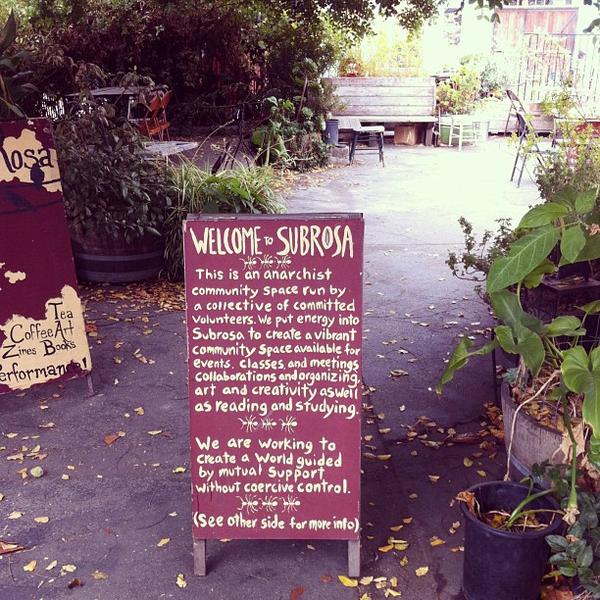 Rosa
Tea
Coffee Art
Zines Books
Performance!
WELCOME to SUBROSA
This is an anarchist
community space run by
a collective of committed
volunteers. We put energy into
Subrosa to create a vibrant
community space available for
events, classes, and meetings
collaborations and organizing,
art and creativity as well
as reading and studying.
We are working to
create a world guided
by mutual support
without coercive control.
(See other side for more info)